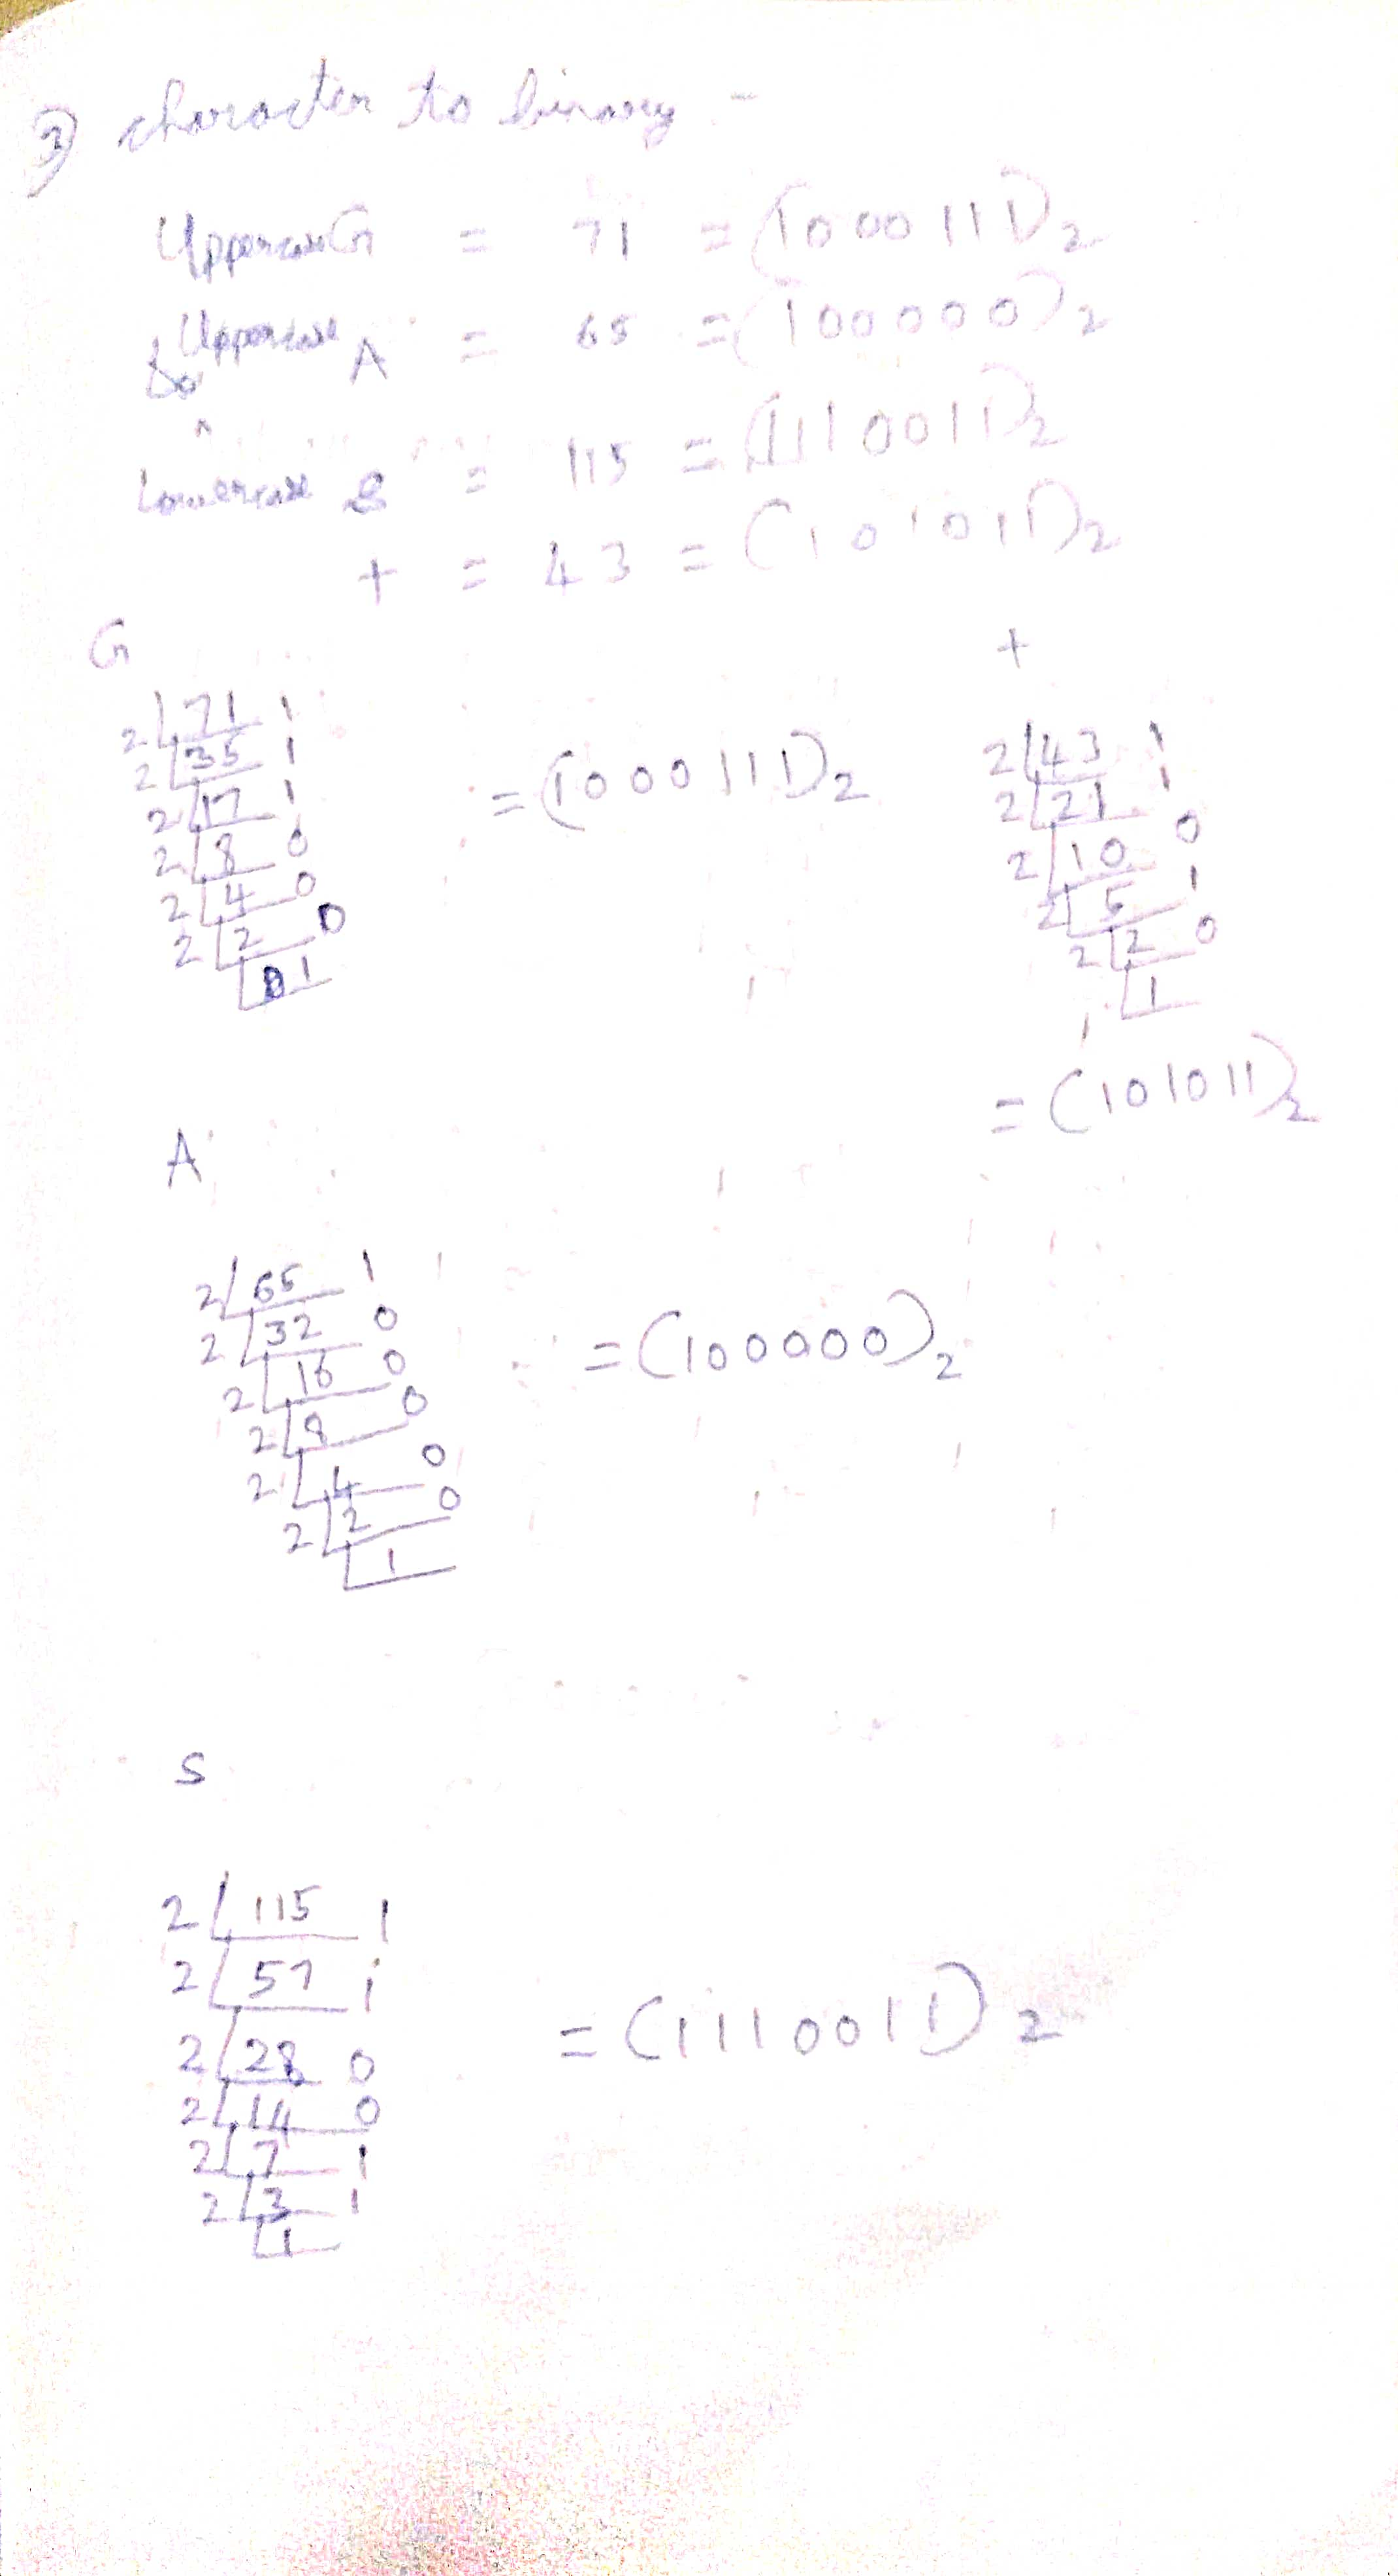 3) character to binary -
Uppercase G = 71 = (1000111)2
Uppercase A = 65 = (100000)2
Lowercase s = 115 = (1110011)2
+ = 43 = (101011)2
G
2 71 1
2 35 1
2 17 1
2 8 0
2 4 0
2 2 0
1
= (1000111)2
+
2 43 1
2 21 1
2 10 0
2 5 1
2 2 0
1
= (101011)2
A
2 65 1
2 32 0
2 16 0
2 8 0
2 4 0
2 2 0
1
= (100000)2
S
2 115 1
2 57 1
2 28 0
2 14 0
2 7 1
2 3 1
1
= (1110011)2